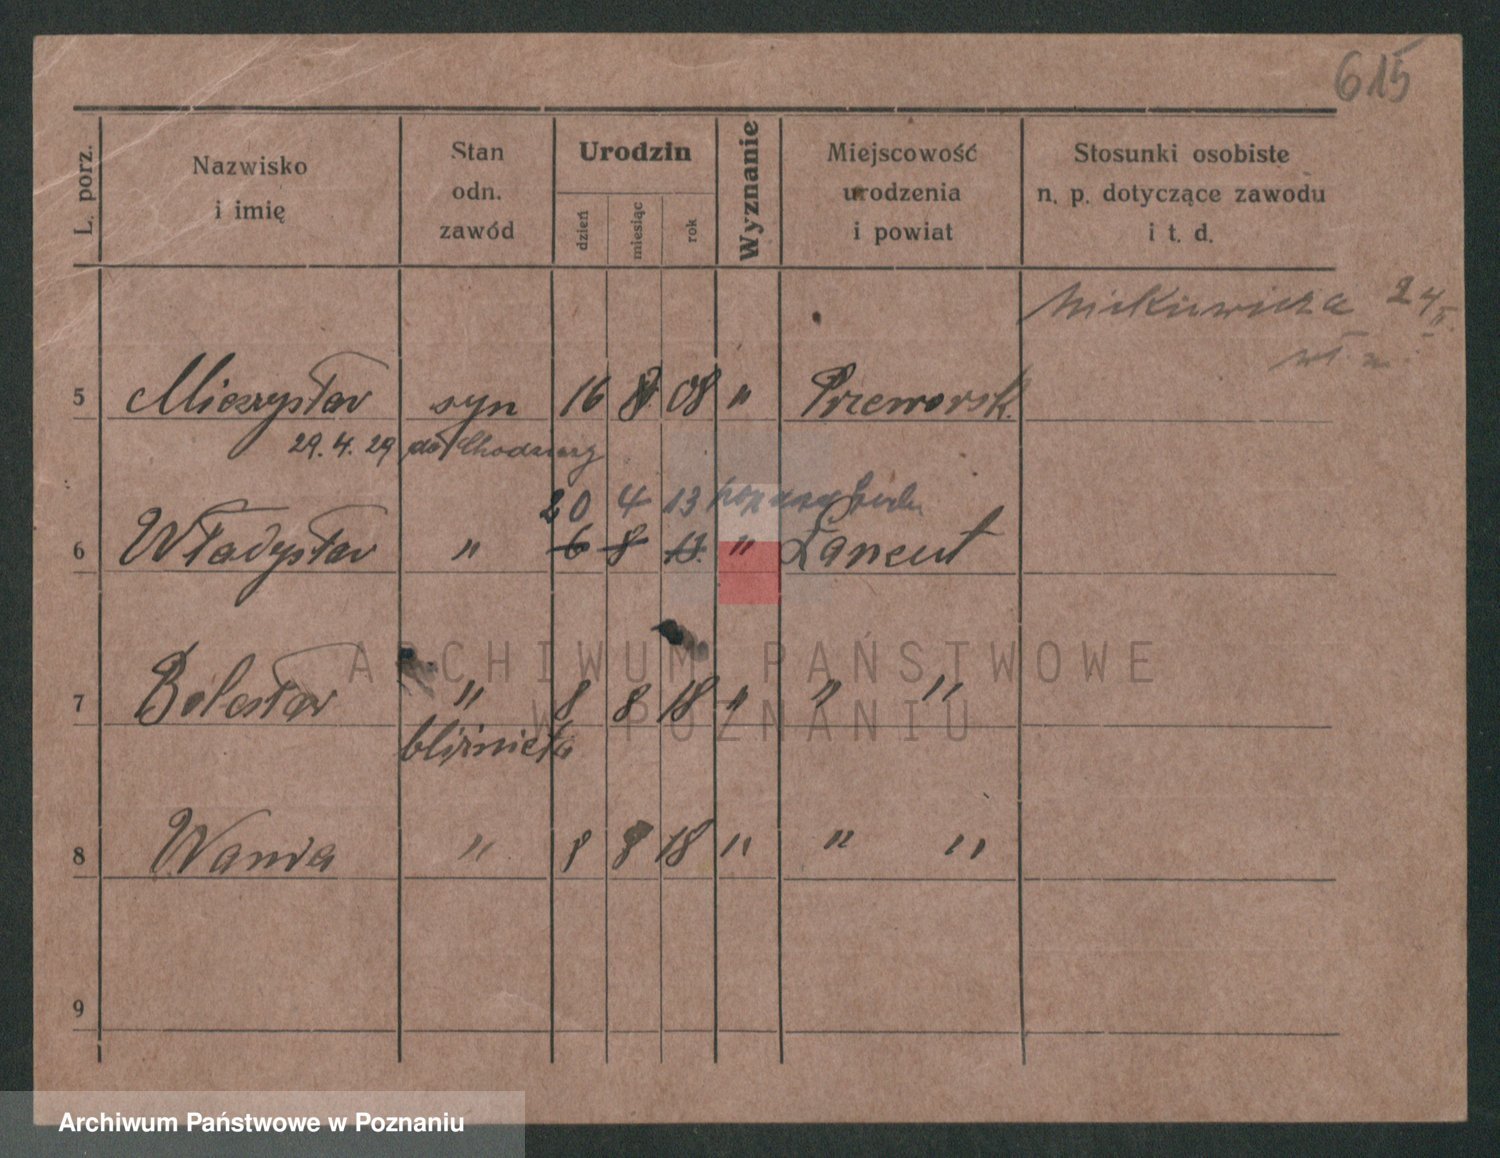 615
L. porz.
Nazwisko
i imię
Stan
odn.
zawód
Urodzin
dzień
miesiąc
rok
Wyznanie
Miejscowość
urodzenia
i powiat
Stosunki osobiste
n. p. dotyczące zawodu
i t. d.
Mickiewicza 24
5 Mieczysław syn 16 8 08 " Przeworsk.
29.4.29 do Chodzieży
20 4 13
6 Władysław " 6 8 11. " Łańcut
7 Bolesław " 8 8 18 " " "
bliźnięta
8 Wanda " 8 8 18 " " "
9
ARCHIWUM PAŃSTWOWE
W POZNANIU
Archiwum Państwowe w Poznaniu